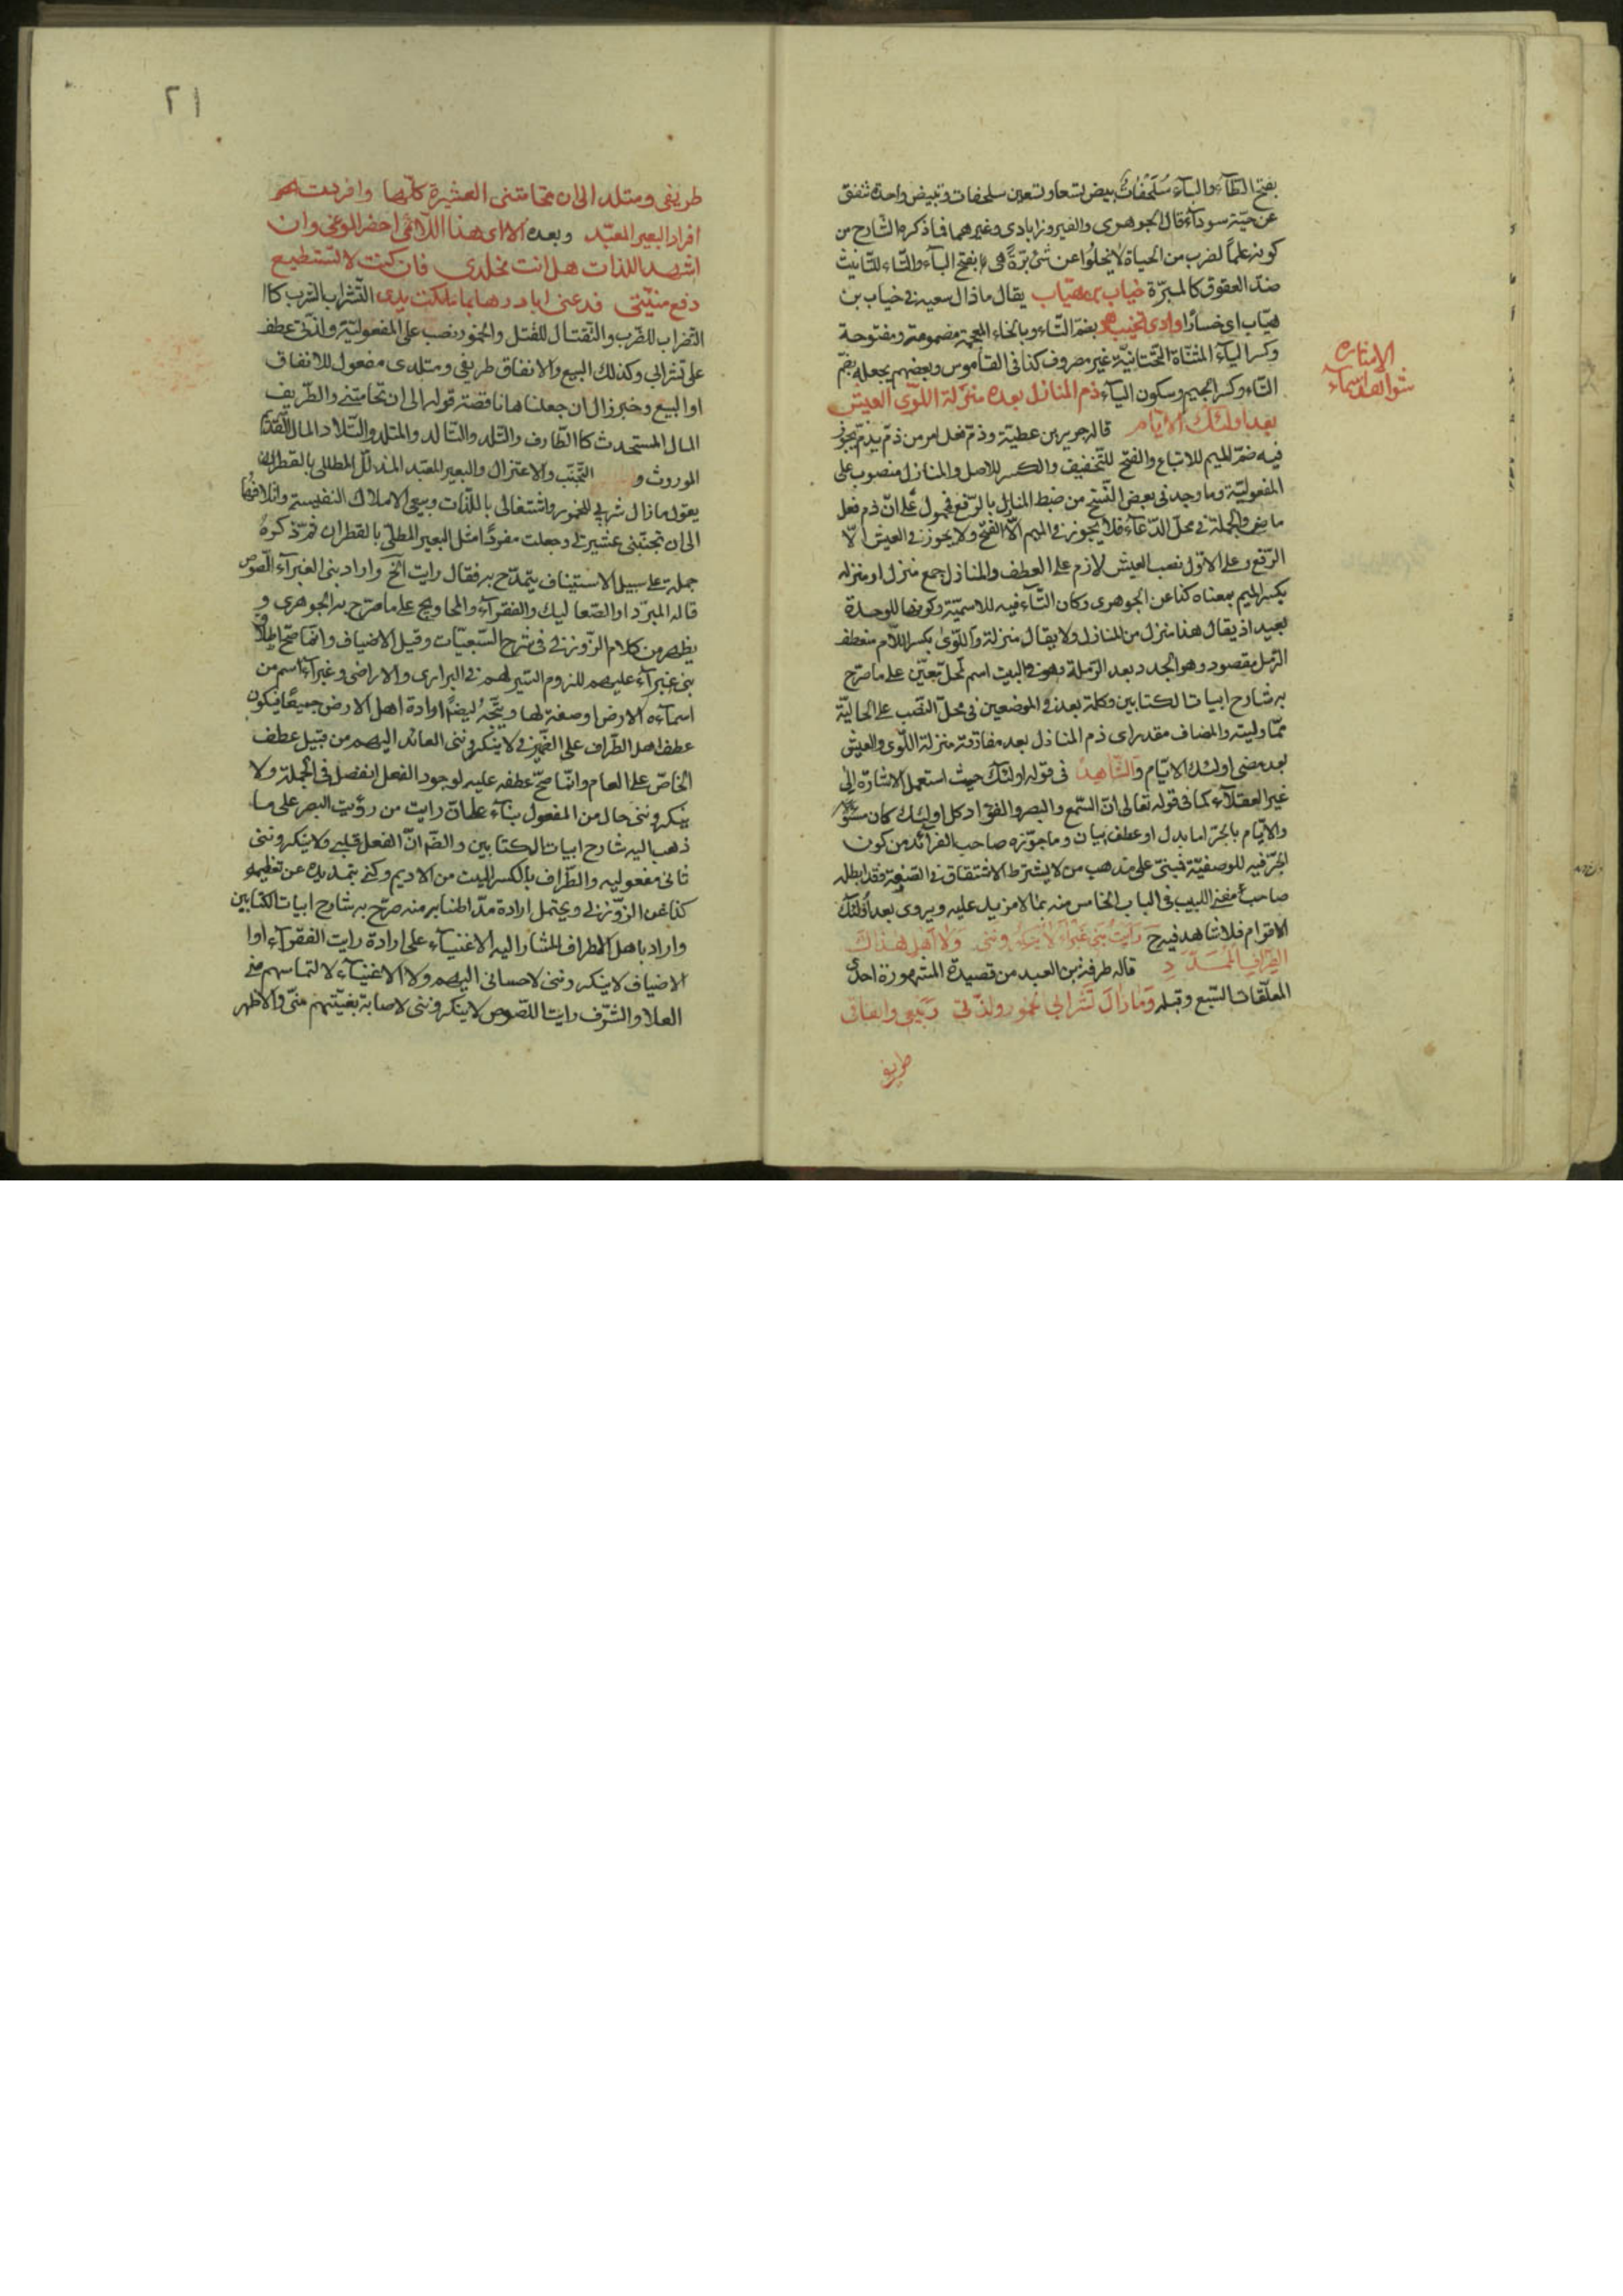 بفتح الطآء والبآء سُلَحْفاتٌ تبيض تسعا وتسعين سلحفات وتبيض واحدة تنفق
عن حيّة سودآء قال الجوهرى والفيروزابادى وغيرهما فما ذكره الشارح من
كونه علماً لضرب من الحياة لا يخلوا عن شئ برّةً هى بفتح البآء والتّاء للتّانيث
ضدّ العقوق كالمبرّة خياب بن هيّاب يقال ما ذال سعيه فى خياب بن
هيّاب اى خسارًا وادى تخيب بضمّ التّاء وبالخاء المعجمة مضمومة ومفتوحة
وكسر اليآء المثنّاة التّحتانيّة غير مصروف كذا فى القاموس وبعضهم يجعله بضمّ
التّاء وكسر الجيم وسكون اليآء ذم المنازل بعده منزلة اللّوى العيش
بعد اولئك الايّام قاله جرير بن عطيّة وذمّ فعل امر من ذمّ يذمّ يجوز
فيه ضمّ الميم للاتباع والفتح للتّخفيف والكسر للاصل والمنازل منصوب على
المفعوليّة وما وجد فى بعض النّسخ من ضبط المنازل بالرّفع فمحمول على انّ ذم فعل
ماضٍ والجملة فى محلّ الدّعآء فلا يجوز فى الميم الّا الفتح ولا يجوز فى العيش الّا
الرّفع وعلى الاوّل نصب العيش لازم على العطف والمنازل جمع منزل او منزلة
بكسر الميم بمعناه كذا عن الجوهرى وكان التّآء فيه للاسميّة وكونها للوحدة
بعيد اذ يقال هذا منزل من المنازل ولا يقال منزلة واللّوى بكسر اللّام منعطف
الرّمل مقصور وهو الجدد بعد الرّملة وهو فى البيت اسم لمحلّ تعيّن على ما صرّح
به شارح ابيات الكتابين وكلمة بعد فى الموضعين فى محلّ النّصب على الحاليّة
ممّا وليته والمضاف مقدر اى ذم المنازل بعد مفارقة منزلة اللّوى والعيش
بعد مضى اولئك الايّام والشّاهد فى قوله اولئك حيث استعمل الاشارة الى
غير العقلآء كما فى قوله تعالى انّ السّمع والبصر والفؤاد كل اولئك كان عنه مسئولا
والايّام بالجرّ اما بدل او عطف بيان وما جوّزه صاحب الفرائد من كون
الجرّ فيه للوصفيّة فمبنىّ على مذهب من لا يشترط الاشتقاق فى الصّفة فقد ابطله
صاحب مغنى اللبيب فى الباب الخامس منه بما لا مزيد عليه ويروى بعد اولئك
الاقوام فلا شاهد فيه ح رَايْتُ بَنى غَبْرَآءَ لا يُنكِرُونَنى وَلا اَهْلُ هٰذاكَ
الطِّرَافِ المُمَدَّدِ قاله طرفة بن العبد من قصيدة المشهورة احدى
المعلّقات السّبع وقبله وَمَا زَالَ تَشْرابى الخُمُورَ ولذّتى وَبَيْعى وانفاقى
طريفى
الاشارة
شواهد اسماء
٢١
طريفى ومتلدى الى ان تحامتنى العشيرة كلّها وافردت
افراد البعير المعبّد وبعده الا اى هذا اللّائمى احضر الوغى وان
اشهد اللذات هل انت مخلدى فان كنت لا تستطيع
دفع منيّتى فدعنى ابادرها بما ملكت يدى التّشراب الشرب كا
التّضراب للضّرب والتّقتال للقتل والخمور نصب على المفعوليّة ولذّتى عطف
على تشرابى وكذلك البيع والانفاق طريفى ومتلدى مفعول للانفاق
او البيع وخبر زال ان جعلناها ناقصة قوله الى ان تحامتنى والطّريف
المال المستحدث كالطّارف والتّلد والتّالد والمتلد والتّلاد المال القديم
الموروث و التّجنّب والاعتزال والبعير المعبّد المذلّل المطلى بالقطران
يقول ما زال شربى للخمور واشتغالى باللّذّات وبيعى الاملاك النّفيسة واتلافها
الى ان تجنّبنى عشيرتى وجعلت مفردًا مثل البعير المطلّى بالقطران ثمّ ذكره
جملة على سبيل الاستيناف يتمدّح به فقال رايت الخ واراد ببنى الغبرآء اللّصوص
قاله المبرّد او الصّعاليك والفقرآء والمحاويج على ما صرّح به الجوهرى و
يظهر من كلام الزّوزنى فى شرح السّبعيّات وقيل الاضياف وانّما صحّ اطلاق
بنى غبرآء عليهم للزوم السّير لهم فى البرارى والاراضى وغبرآء اسم من
اسمآء الارض او صفة لها ويتّجه ايضًا ارادة اهل الارض جميعًا فيكون
عطف اهل الطّراف على الضّمير فى لا ينكروننى العائد اليهم من قبيل عطف
الخاصّ على العام وانّما صحّ عطفه عليه لوجود الفعل انفصل فى الجملة ولا
ينكروننى حال من المفعول بنآء على انّ رايت من رؤيت البصر على ما
ذهب اليه شارح ابيات الكتابين والضّم انّ الفعل قلبى ولا ينكروننى
ثانى مفعوليه والطّراف بالكسر البيت من الاديم وكنى بتمديده عن تعظيمه
كذا عن الزّوزنى ويحتمل ارادة مدّ اطنابه منه صرّح به شارح ابيات الكتابين
واراد باهل الطراف المشار اليه الاغنيآء على ارادة رايت الفقرآء اوا
الاضياف لا ينكروننى لاحسانى اليهم ولا الاغنيآء لالتماسهم منى
العلا والشّرف رايت اللّصوص لا ينكروننى لاصابة بغيّتهم منّى والاظهر